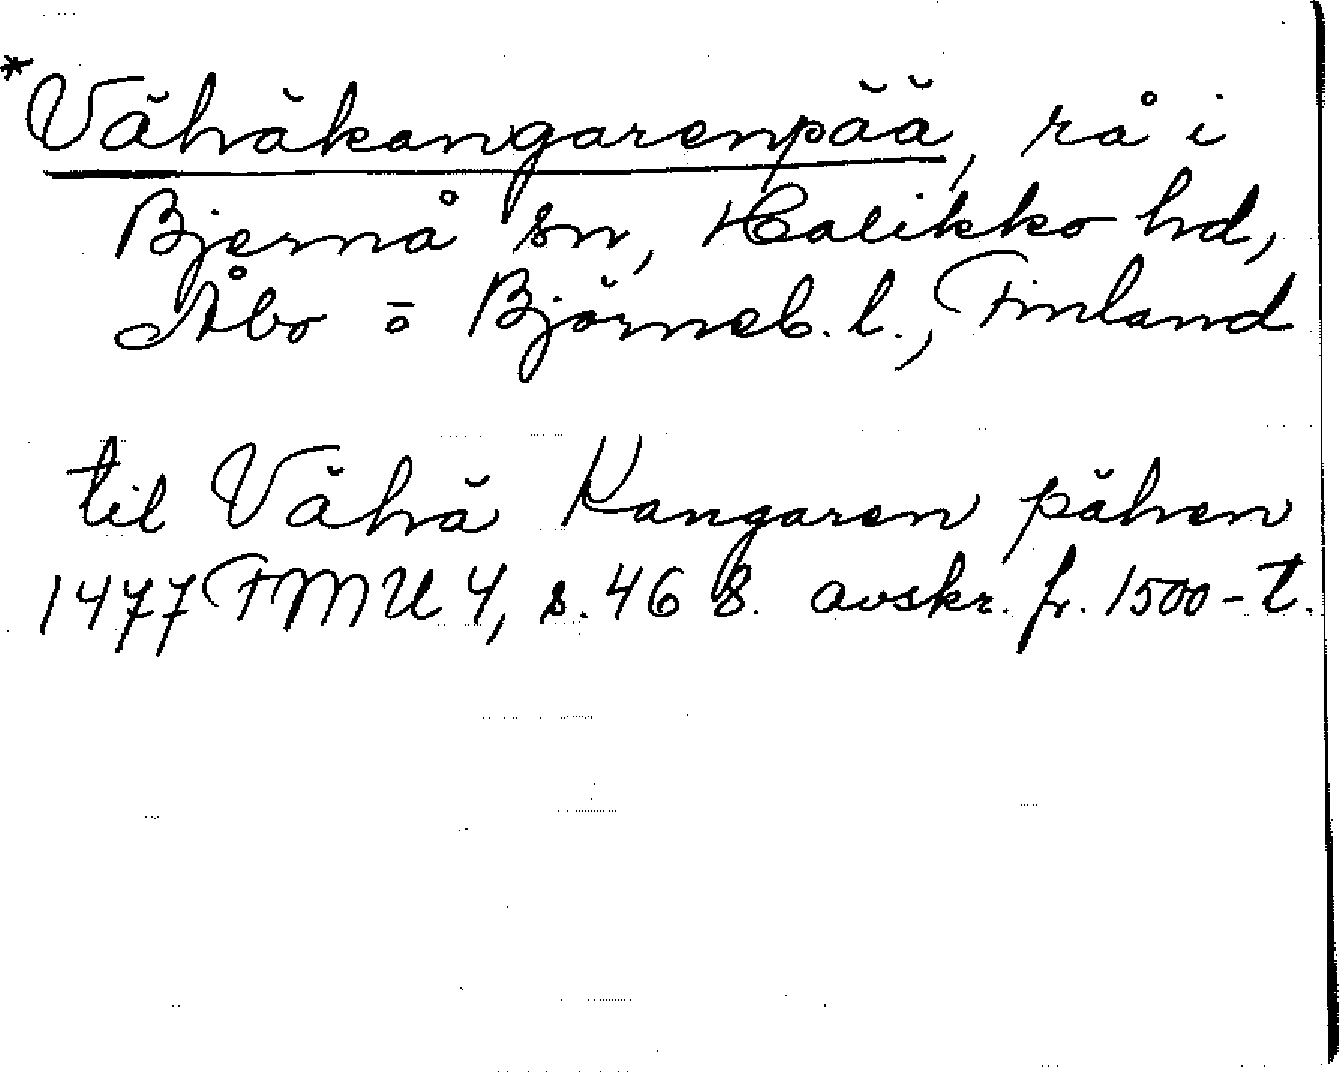 *Vähäkangarenpää, rå i
Bjernå sn, Halikko hd,
Åbo o Björneb. l., Finland
til Vähä Kangaren pähen
1477 FMU 4, s. 468. avskr. fr. 1500-t.